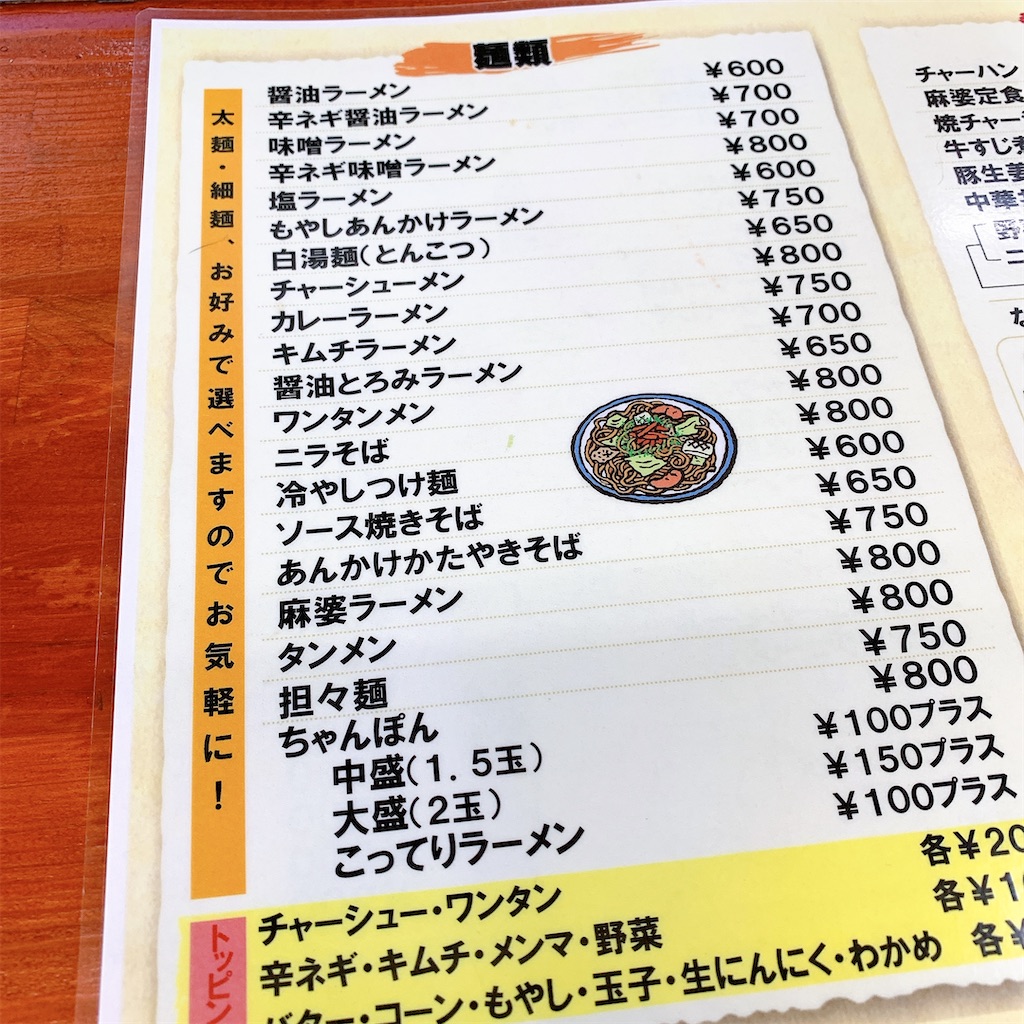 麺類
太麺・細麺、お好みで選べますのでお気軽に!
醤油ラーメン ¥600
辛ネギ醤油ラーメン ¥700
味噌ラーメン ¥700
辛ネギ味噌ラーメン ¥800
塩ラーメン ¥600
もやしあんかけラーメン ¥750
白湯麺(とんこつ) ¥650
チャーシューメン ¥800
カレーラーメン ¥750
キムチラーメン ¥700
醤油とろみラーメン ¥650
ワンタンメン ¥800
ニラそば ¥800
冷やしつけ麺 ¥600
ソース焼きそば ¥650
あんかけかたやきそば ¥750
麻婆ラーメン ¥800
タンメン ¥800
担々麺 ¥750
ちゃんぽん ¥800
中盛(1.5玉) ¥100プラス
大盛(2玉) ¥150プラス
こってりラーメン ¥100プラス
トッピン
チャーシュー・ワンタン 各¥20
辛ネギ・キムチ・メンマ・野菜 各¥1
バター・コーン・もやし・玉子・生にんにく・わかめ 各¥
チャーハン
麻婆定食
焼チャー
牛すじ
豚生姜
中華
野
ニ
な